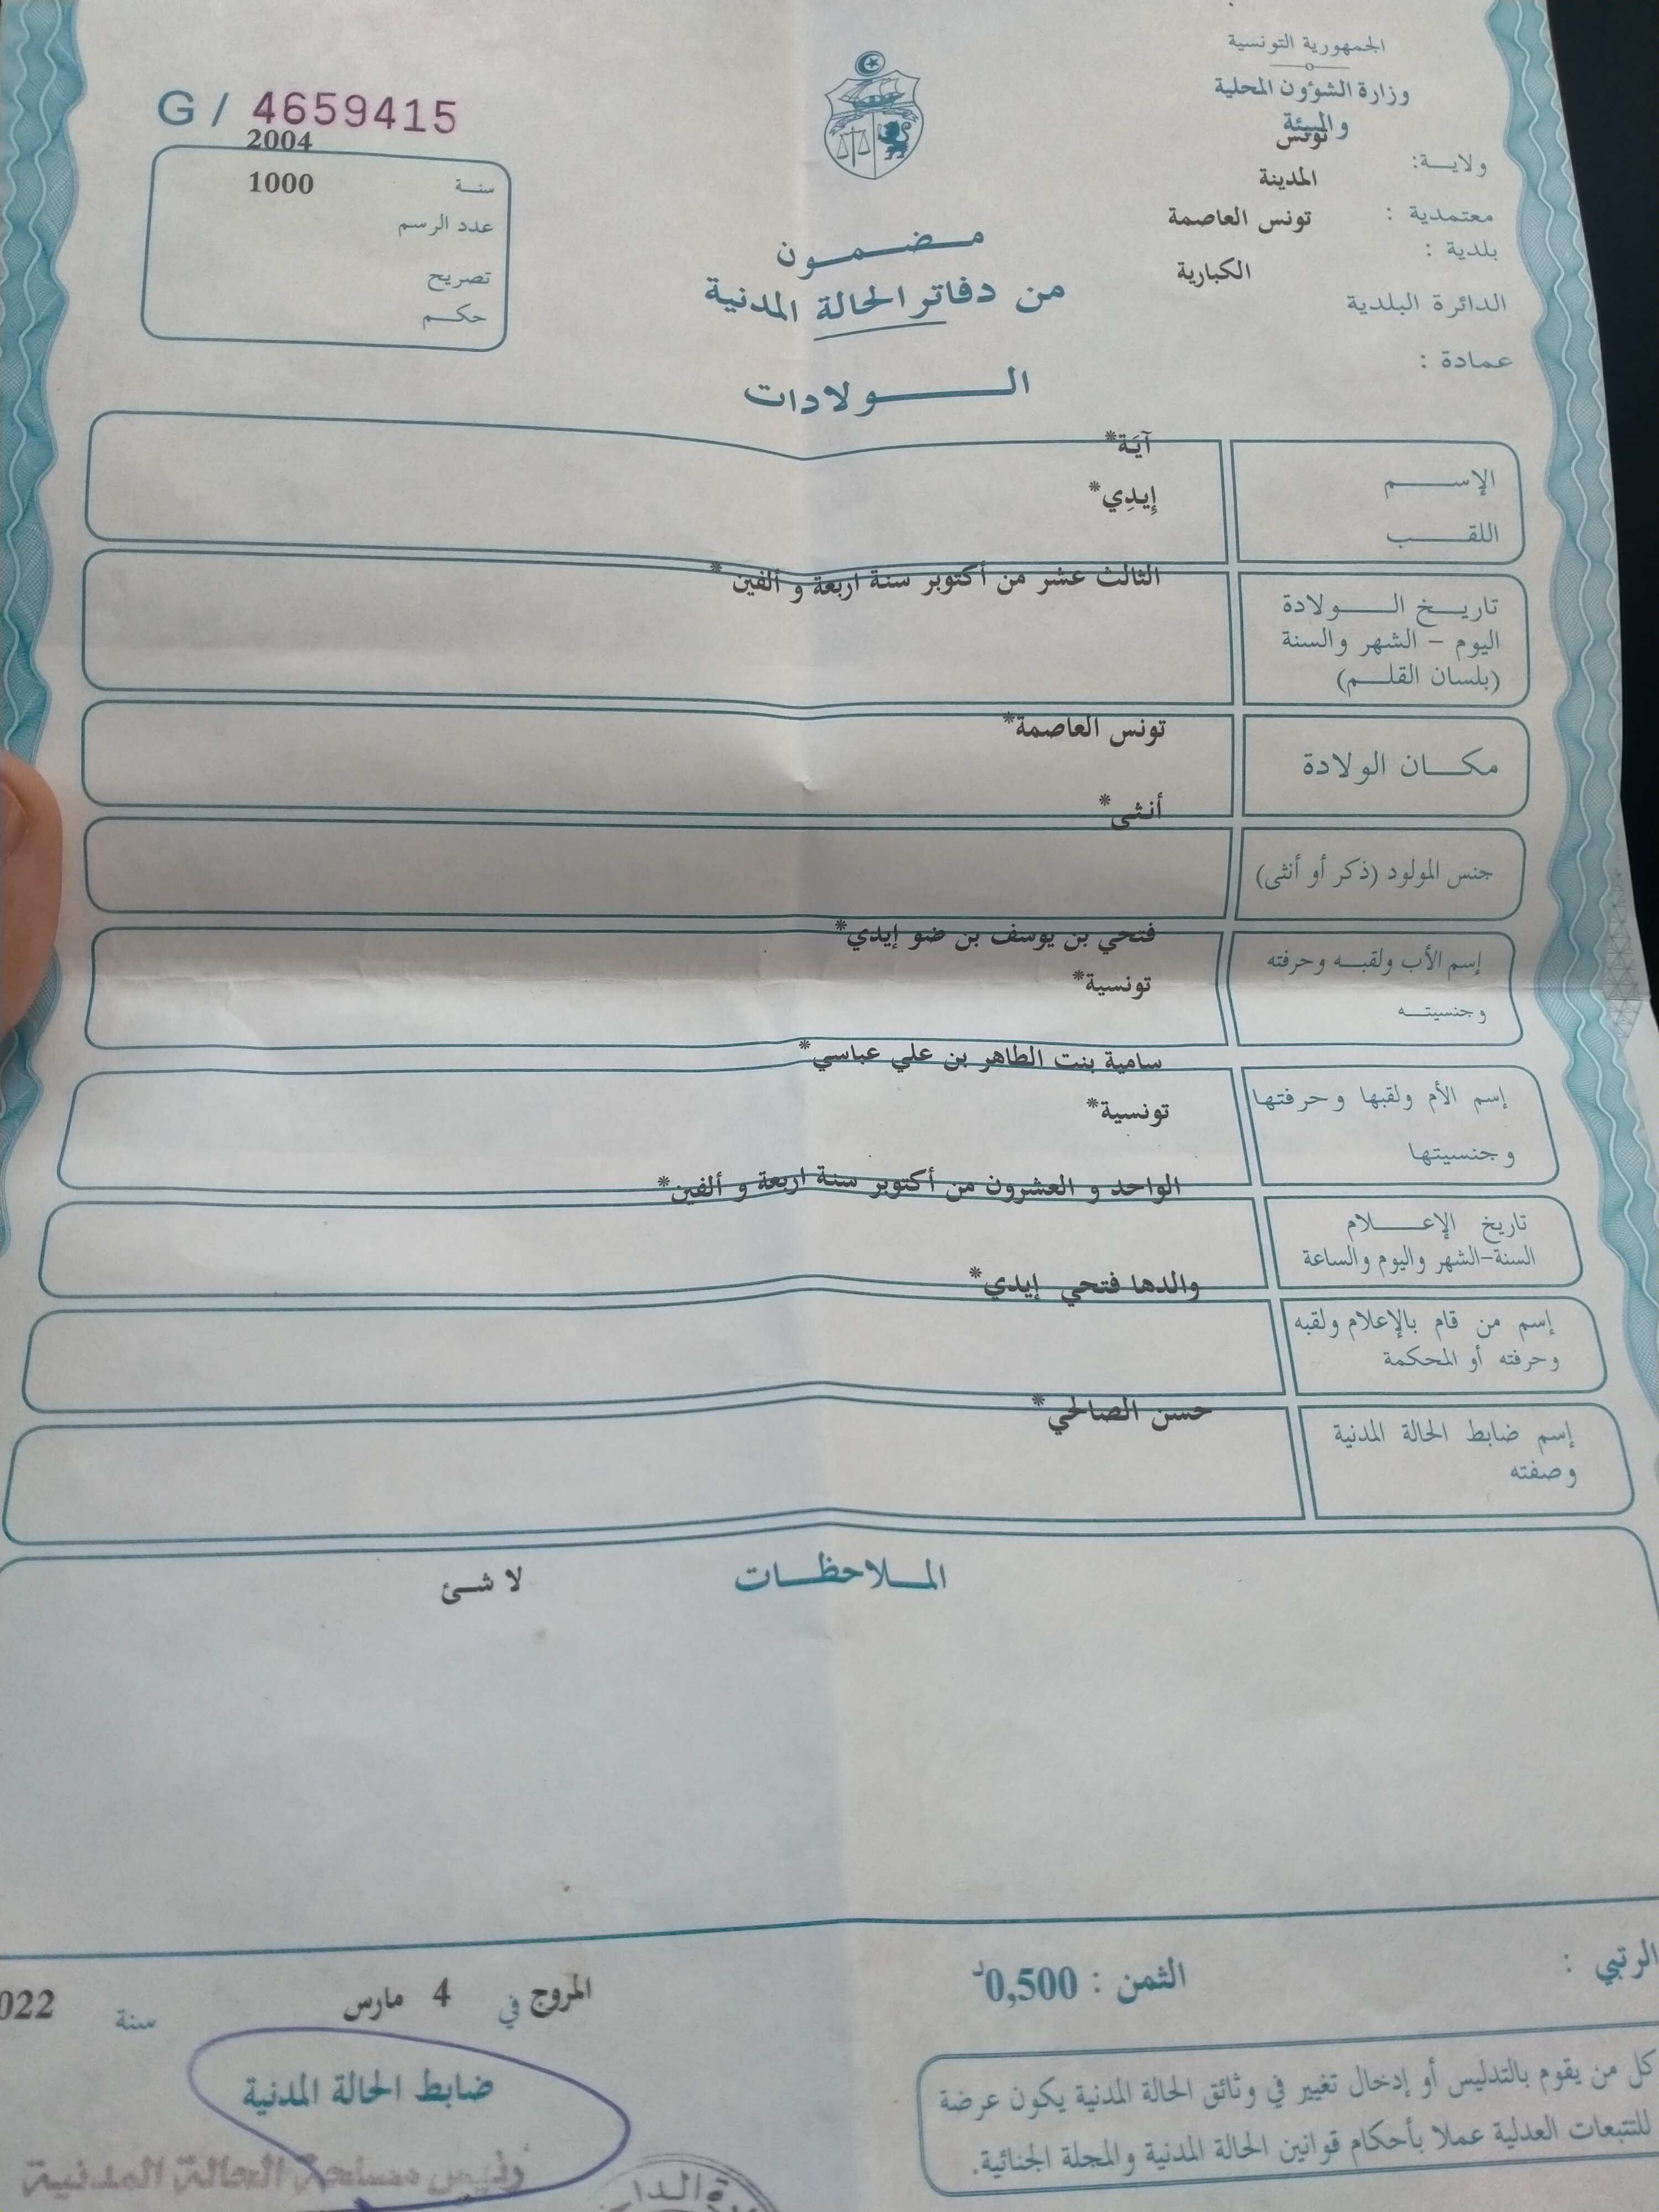 الجمهورية التونسية
وزارة الشؤون المحلية
والبيئة
ولاية: تونس
معتمدية : المدينة
بلدية : تونس العاصمة
الدائرة البلدية الكبارية
عمادة :
G / 4659415
2004
سنة 1000
عدد الرسم
تصريح
حكم
مضمون
من دفاتر الحالة المدنية
الولادات
الإسم آيَة*
اللقب إِيدِي*
تاريخ الولادة الثالث عشر من أكتوبر سنة اربعة و ألفين*
اليوم - الشهر والسنة
(بلسان القلم)
مكان الولادة تونس العاصمة*
جنس المولود (ذكر أو أنثى) أنثى*
إسم الأب ولقبه وحرفته فتحي بن يوسف بن ضو إيدي*
وجنسيته تونسية*
إسم الأم ولقبها وحرفتها سامية بنت الطاهر بن علي عباسي*
وجنسيتها تونسية*
تاريخ الإعلام الواحد و العشرون من أكتوبر سنة اربعة و ألفين*
السنة-الشهر واليوم والساعة
إسم من قام بالإعلام ولقبه والدها فتحي إيدي*
وحرفته أو المحكمة
إسم ضابط الحالة المدنية حسن الصالحي*
وصفته
الملاحظات
لا شئ
الرتبي :
الثمن : 0,500د
المروج في 4 مارس سنة 022
كل من يقوم بالتدليس أو إدخال تغيير في وثائق الحالة المدنية يكون عرضة
للتتبعات العدلية عملا بأحكام قوانين الحالة المدنية والمجلة الجنائية.
ضابط الحالة المدنية
رئيس مصلحة الحالة المدنية